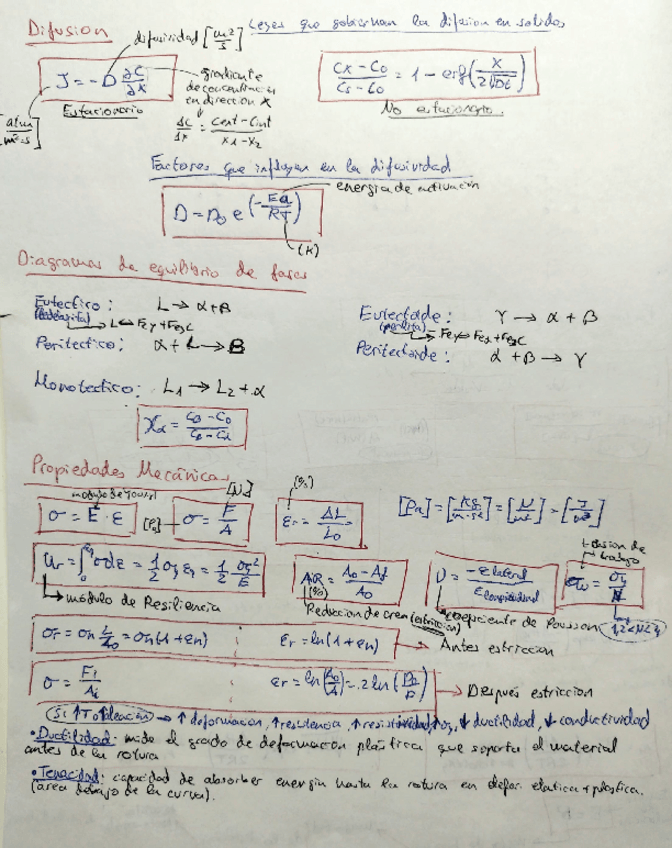 Difusion
difusividad [m²/s]
Leyes que gobiernan la difusion en solidos
J = -D ∂C/∂x
gradiente de concentracion en dirección x
Estacionario
[atom/m²·s]
ΔC/Δx = (Cent - Cint)/(x1 - x2)
(Cx - C0)/(Cs - C0) = 1 - erf(x/(2√Dt))
No estacionario.
Factores que influyen en la difusividad
energia de activación
D = D0 e^(-Ea/RT)
(K)
Diagramas de equilibrio de fases
Eutectico: L → α + β
(ledeburita) → L ↔ Feγ + Fe3C
Peritectico: α + L → β
Monotectico: L1 → L2 + α
Eutectoide: γ → α + β
(perlita) → Feγ ↔ Feα + Fe3C
Peritectoide: α + β → γ
Xα = (Cβ - C0)/(Cβ - Cα)
Propiedades Mecánicas
modulo de Young
σ = E · ε
[Pa]
[N]
σ = F/A
(%)
εr = ΔL/L0
[Pa] = [kg/m·s²] = [N/m²] = [J/m³]
Ur = ∫ σdε = 1/2 σy εy = 1/2 σy²/E
→ módulo de Resiliencia
A%R = (A0 - Af)/A0
(%)
Reduccion de area (estricción)
ν = -ε lateral / ε longitudinal
coeficiente de Poisson
tension de trabajo
σw = σy/N
1,2 < N < 4
σr = σn L/L0 = σn(1 + εn) εr = ln(1 + εn) → Antes estriccion
σ = Fi/Ai εr = ln(A0/A) = 2 ln(D0/D) → Despues estriccion
Si ↑ → ↑ deformacion, ↑ resistencia, ↑ resistividad, ↑σy, ↓ ductilidad, ↓ conductividad
• Ductilidad: mide el grado de deformación plástica que soporta el material
antes de la rotura
• Tenacidad: capacidad de absorber energia hasta la rotura en defor. elatica + plastica.
(área debajo de la curva).